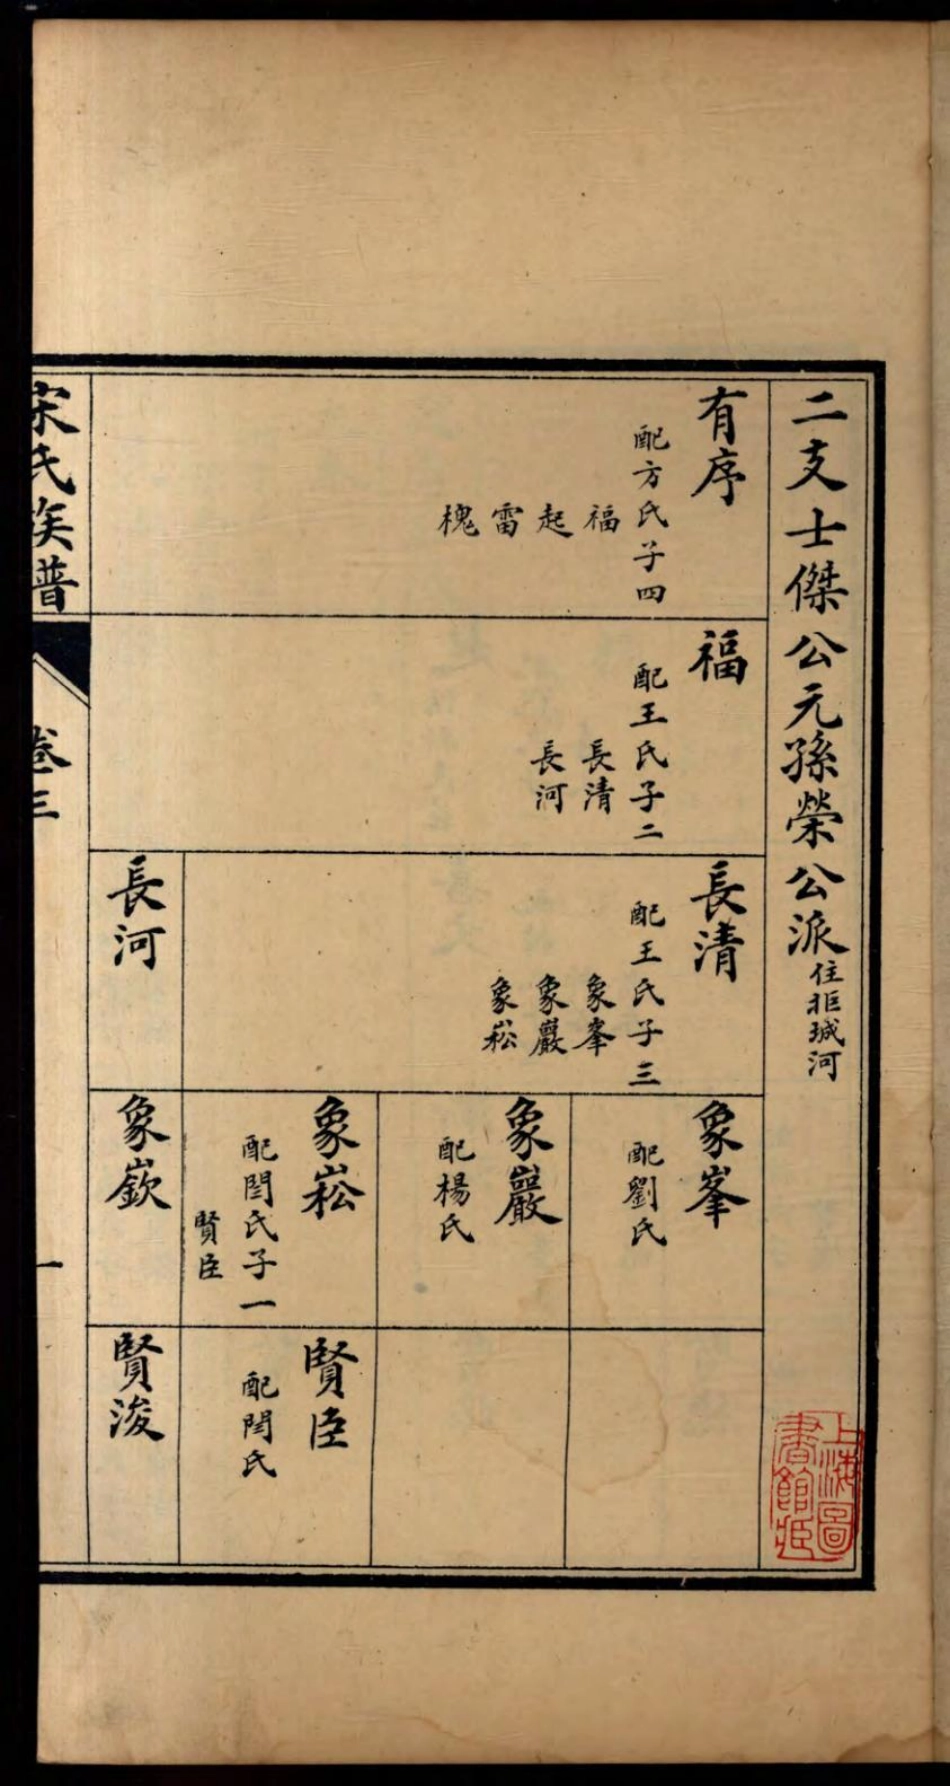 二支士傑公元孫榮公派住拒瑊河
有序
配方氏子四
福
起
雷
槐
福
配王氏子二
長清
長河
長清
配王氏子三
象峯
象巖
象崧
長河
象峯
配劉氏
象巖
配楊氏
象崧
配閆氏子一
賢臣
象嶔
賢臣
配閆氏
賢浚
宋氏族普
卷三
一
上海圖
書館藏